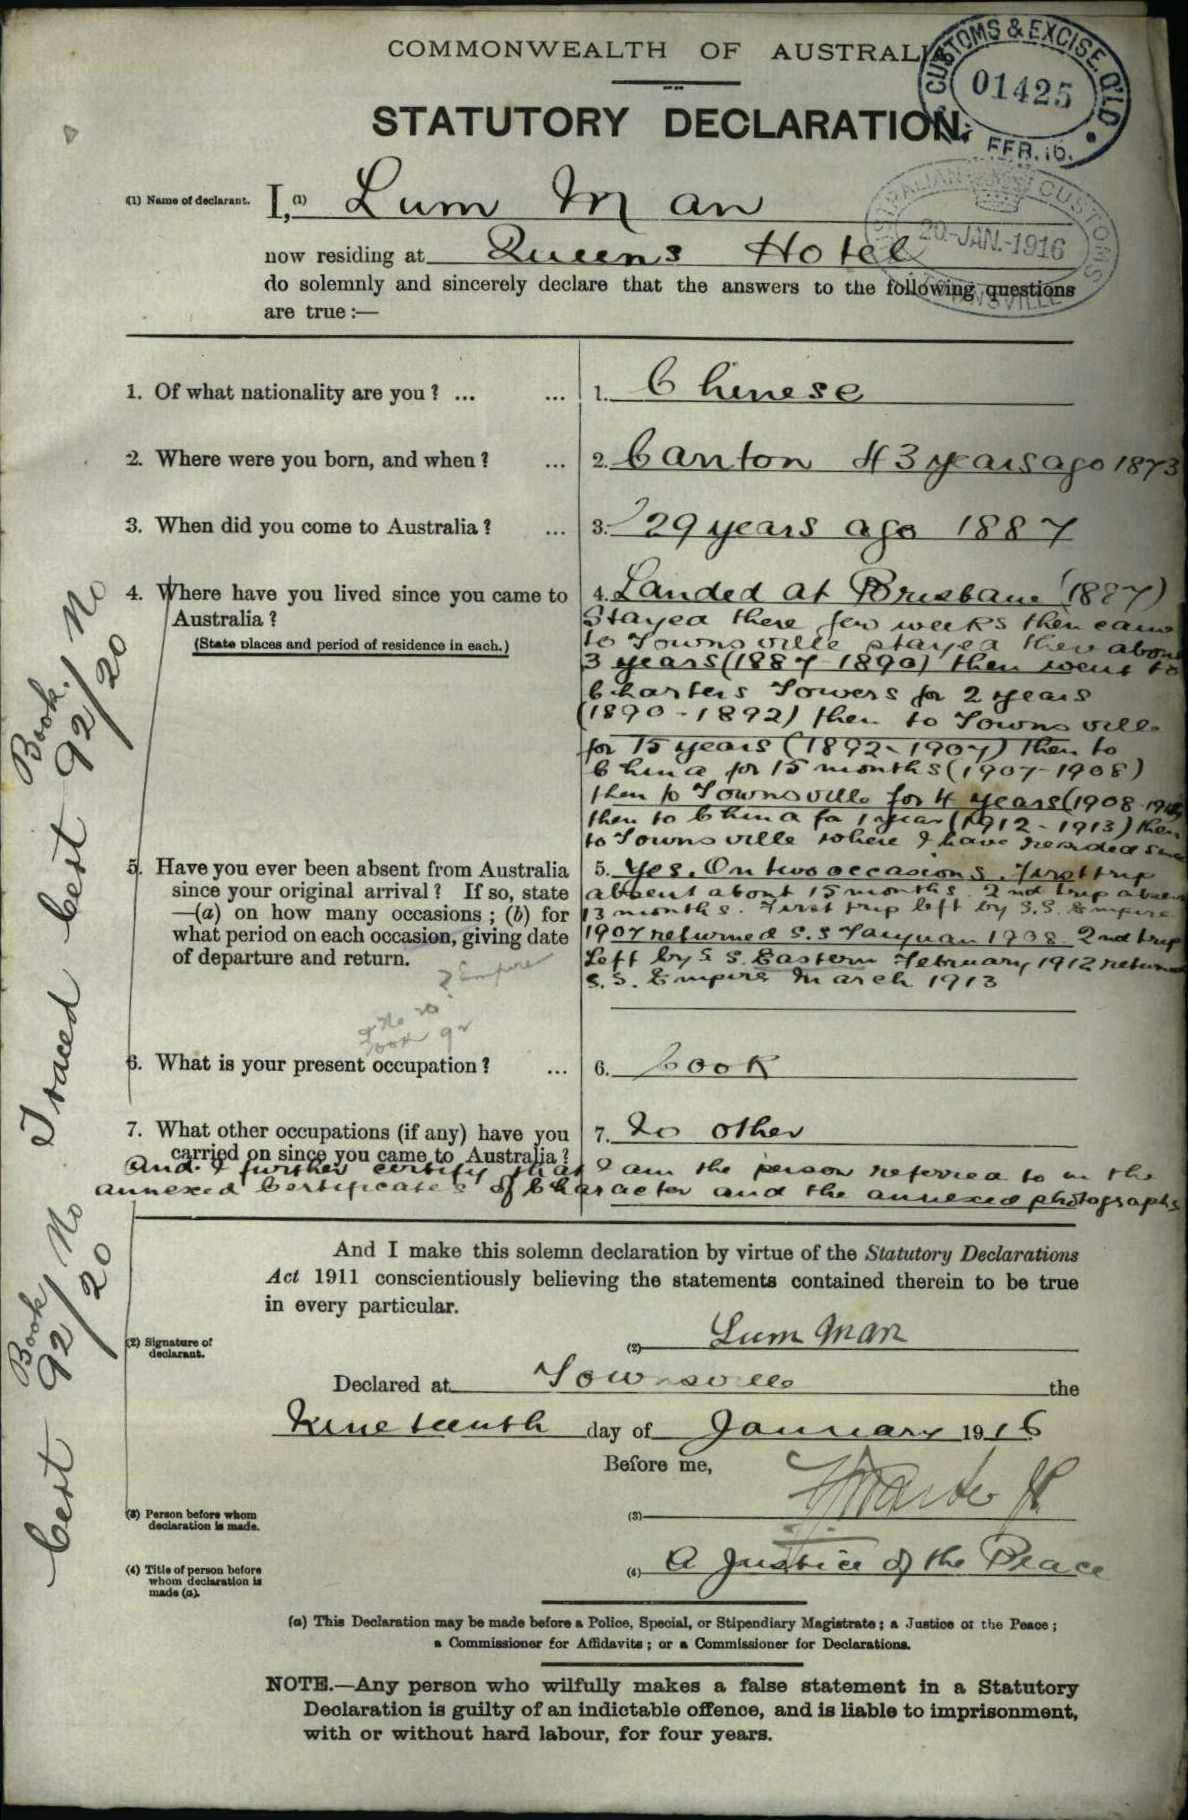 COMMONWEALTH OF AUSTRALIA
CUSTOMS & EXCISE. Q'LD
01425
FEB. 16.
STATUTORY DECLARATION.
AUSTRALIAN CUSTOMS
20-JAN.-1916
TOWNSVILLE
(1) Name of declarant. I,(1) Lum Man
now residing at Queens Hotel
do solemnly and sincerely declare that the answers to the following questions
are true :—
1. Of what nationality are you ? ... ... 1. Chinese
2. Where were you born, and when ? ... 2. Canton 43 years ago 1873
3. When did you come to Australia ? ... 3. 29 years ago 1887
4. Where have you lived since you came to
Australia ?
(State places and period of residence in each.)
4. Landed at Brisbane (1887)
Stayed there few weeks then came
to Townsville stayed there about
3 years (1887-1890) then went to
Charters Towers for 2 years
(1890-1892) then to Townsville
for 15 years (1892-1907) then to
China for 15 months (1907-1908)
then to Townsville for 4 years (1908-1912
then to China for 1 year (1912-1913) then
to Townsville where I have resided since
5. Have you ever been absent from Australia
since your original arrival ? If so, state
—(a) on how many occasions ; (b) for
what period on each occasion, giving date
of departure and return.
5. Yes. On two occasions. First trip
absent about 15 months. 2nd trip absent
13 months. First trip left by S.S. Empire
1907 returned S.S Taiyuan 1908. 2nd trip
Left by S.S. Eastern February 1912 return
S.S. Empire March 1913
? Empire
No 20
Book 92
6. What is your present occupation ? ... 6. Cook
7. What other occupations (if any) have you
carried on since you came to Australia ?
7. No other
And I further certify that I am the person referred to in the
annexed Certificates of Character and the annexed photographs
And I make this solemn declaration by virtue of the Statutory Declarations
Act 1911 conscientiously believing the statements contained therein to be true
in every particular.
(2) Signature of
declarant.
(2) Lum Man
Declared at Townsville the
Nineteenth day of January 1916
Before me,
(3) Person before whom
declaration is made.
(3) JP
(4) Title of person before
whom declaration is
made (a).
(4) A Justice of the Peace
(a) This Declaration may be made before a Police, Special, or Stipendiary Magistrate ; a Justice of the Peace ;
a Commissioner for Affidavits ; or a Commissioner for Declarations.
NOTE.—Any person who wilfully makes a false statement in a Statutory
Declaration is guilty of an indictable offence, and is liable to imprisonment,
with or without hard labour, for four years.
Traced Cert Book 92/No 20
Cert Book 92/No 20